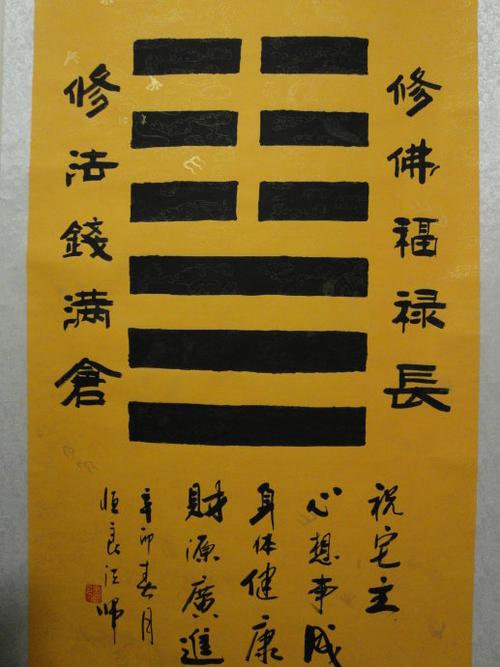 修佛福禄長
修法錢满倉
祝宅主
心想事成
身体健康
財源廣進
辛卯春月
恒良法师